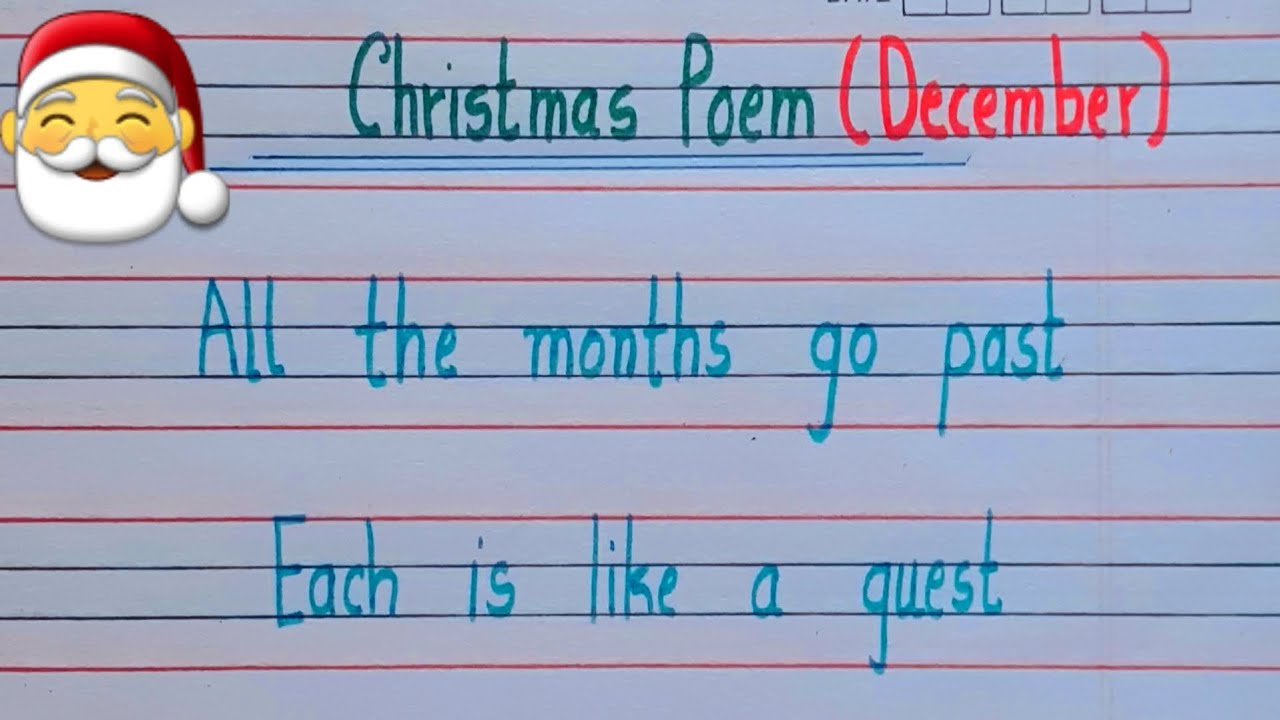 Christmas Poem (December)
All the months go past
Each is like a guest